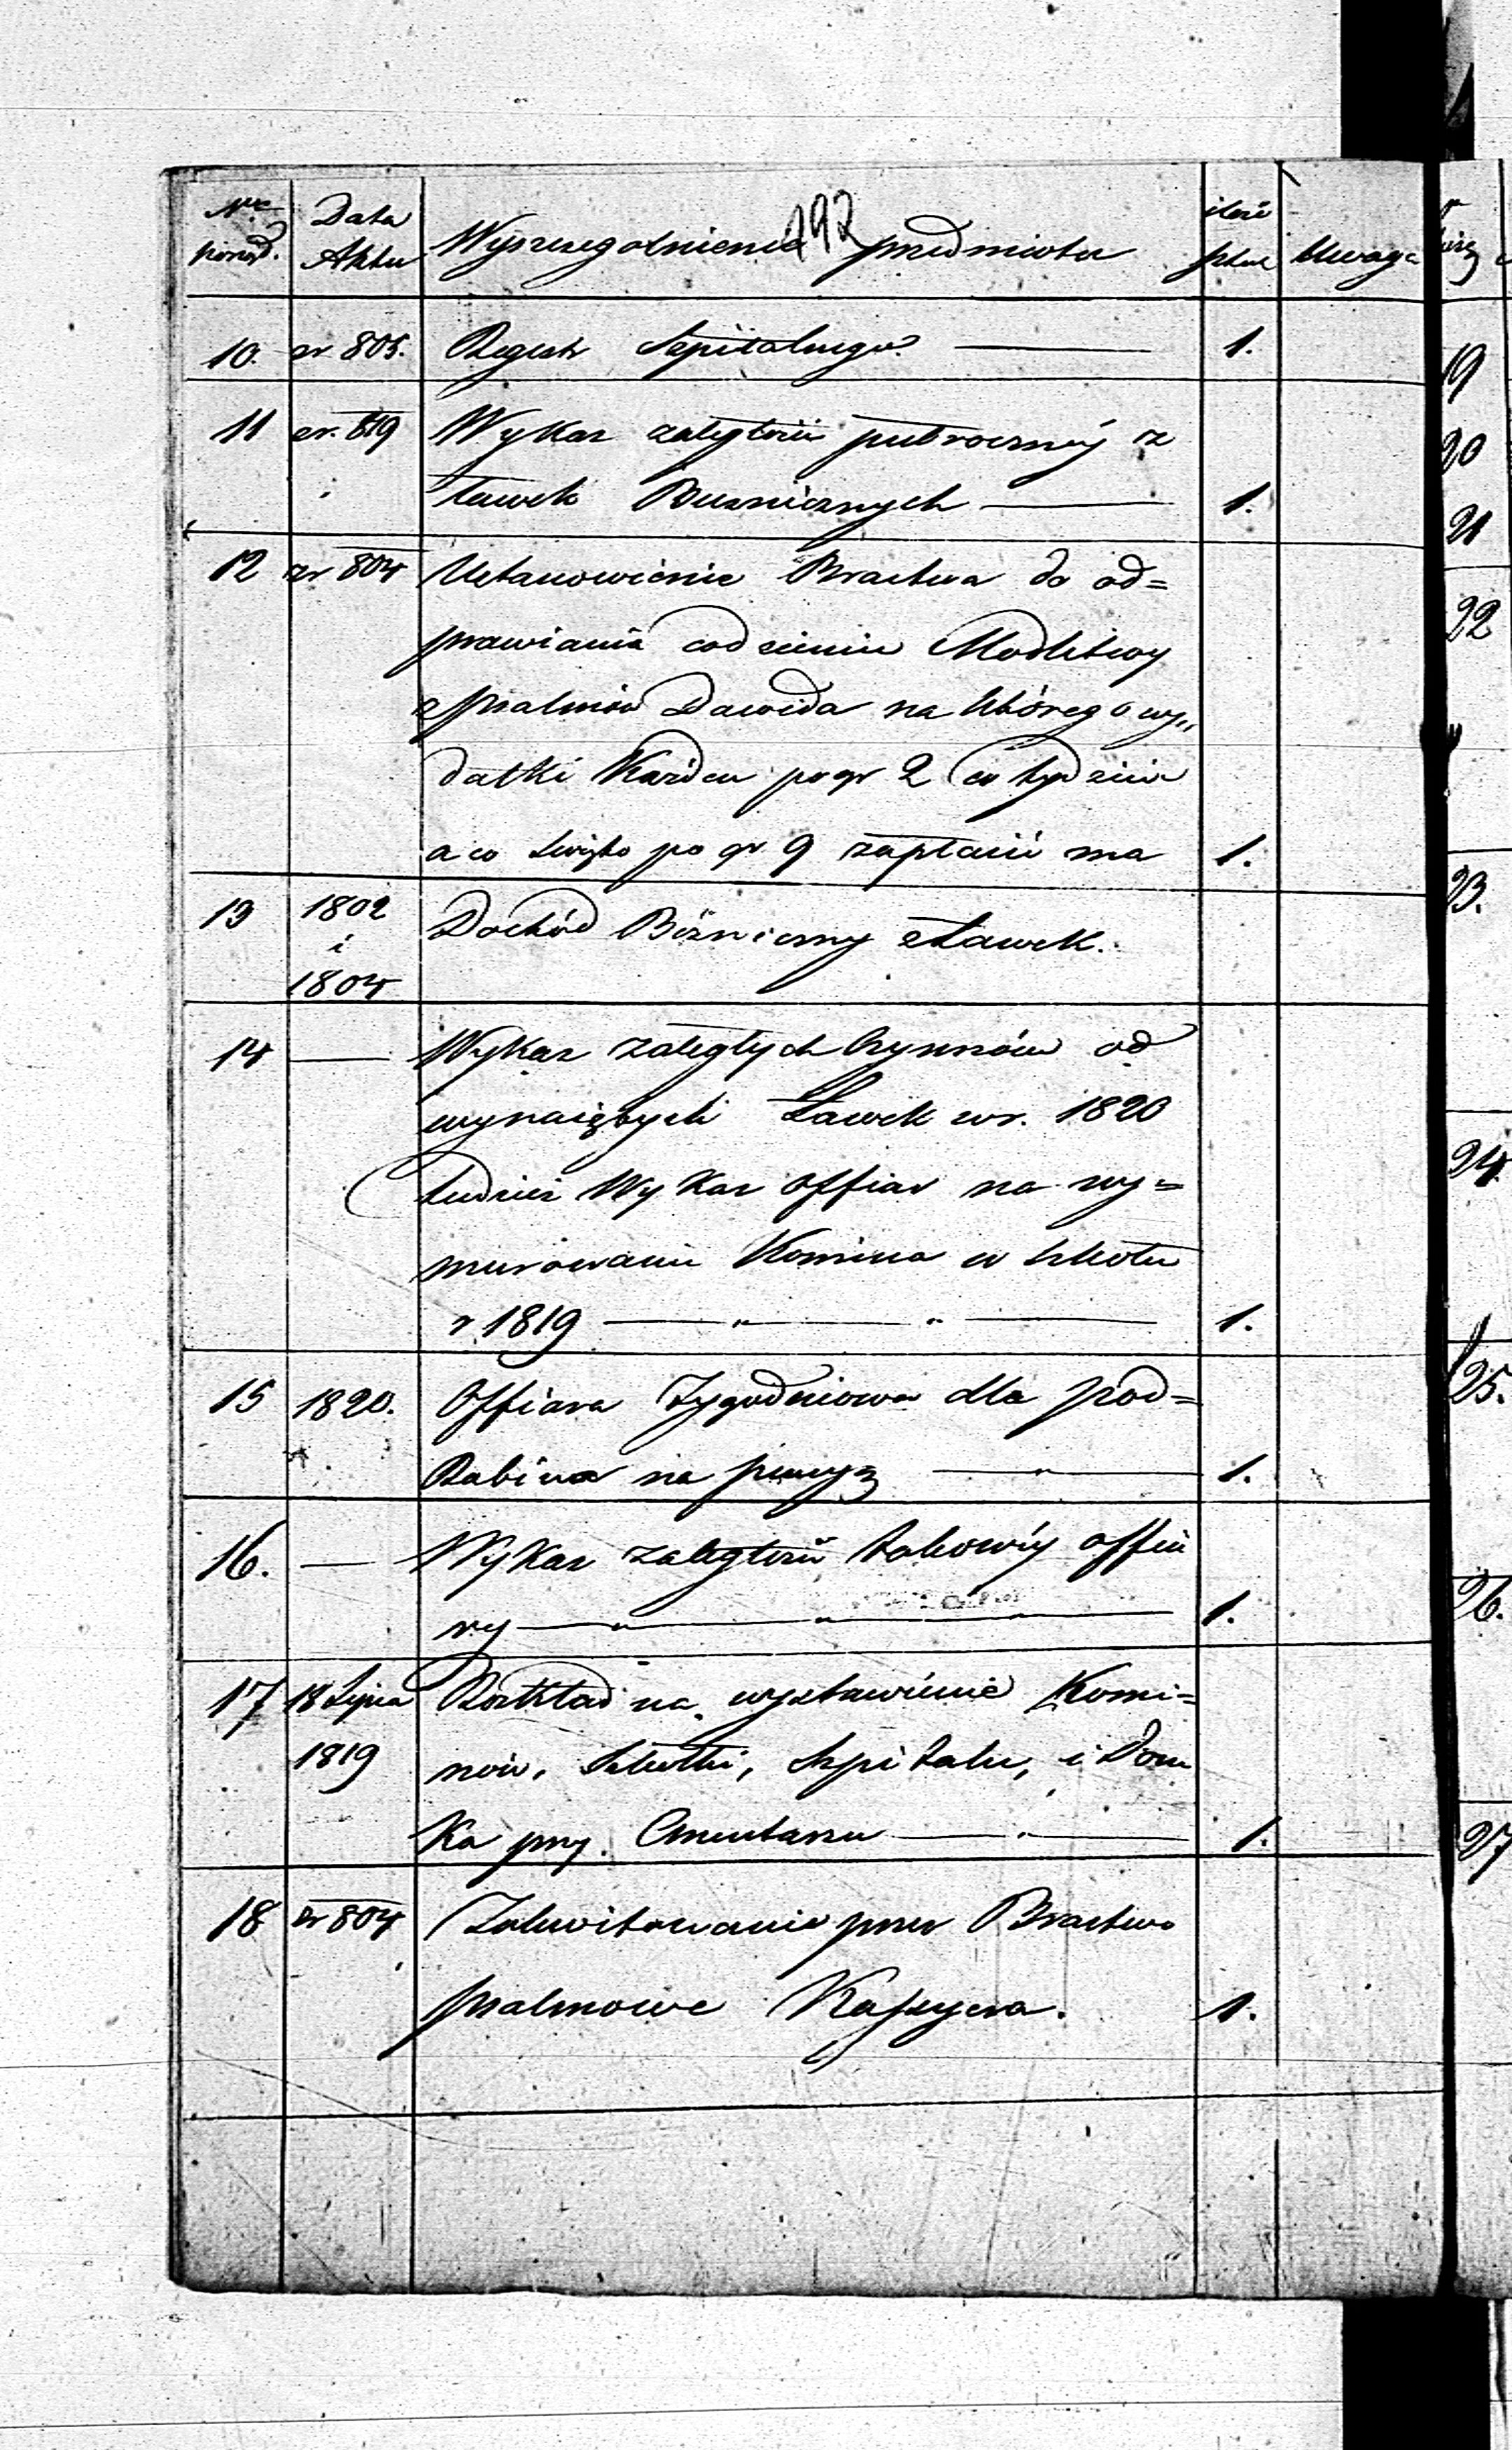 Nro porząd. Data Aktu Wyszczególnienie przedmiotu ilość sztuk Uwaga
197
10. zr 805. Regestr Szpitalnego 1.
11 zr. 819 Wykaz zaległości półroczney z
ławek Bużnicznych 1.
12 zr 804 Ustanowienie Bractwa do od=
prawiania codziennie Modlitwy
z Psalmów Dawida na którego wy„
datki Każden po gr 2 co tydzień
a co święto po gr 9 zapłacić ma 1.
13 1802 i 1804 Dochód Bóżniczny z Ławek.
14 — Wykaz zaległych Czynszów od
wynaiętych Ławek w r. 1820
tudzież Wykaz offiar na wy=
murowanie Komina w Szkole
r 1819 — „ — „ — 1.
15 1820. Offiara Tygodniowa dla pod=
Rabina na pensyę — „ — 1.
16. — Wykaz zaległości takowéy offia
ry — „ — „ — „ — 1.
17 18 Lipca 1819 Rozkład na wystawienie Komi=
nów, Szkółki, Szpitalu, i Dom
Ka przy Cmentarzu 1.
18 zr 804 Zakwitowanie przez Bractwo
psalmowe Kassyera. 1.
19
20
21
22
23.
24.
25.
26.
27